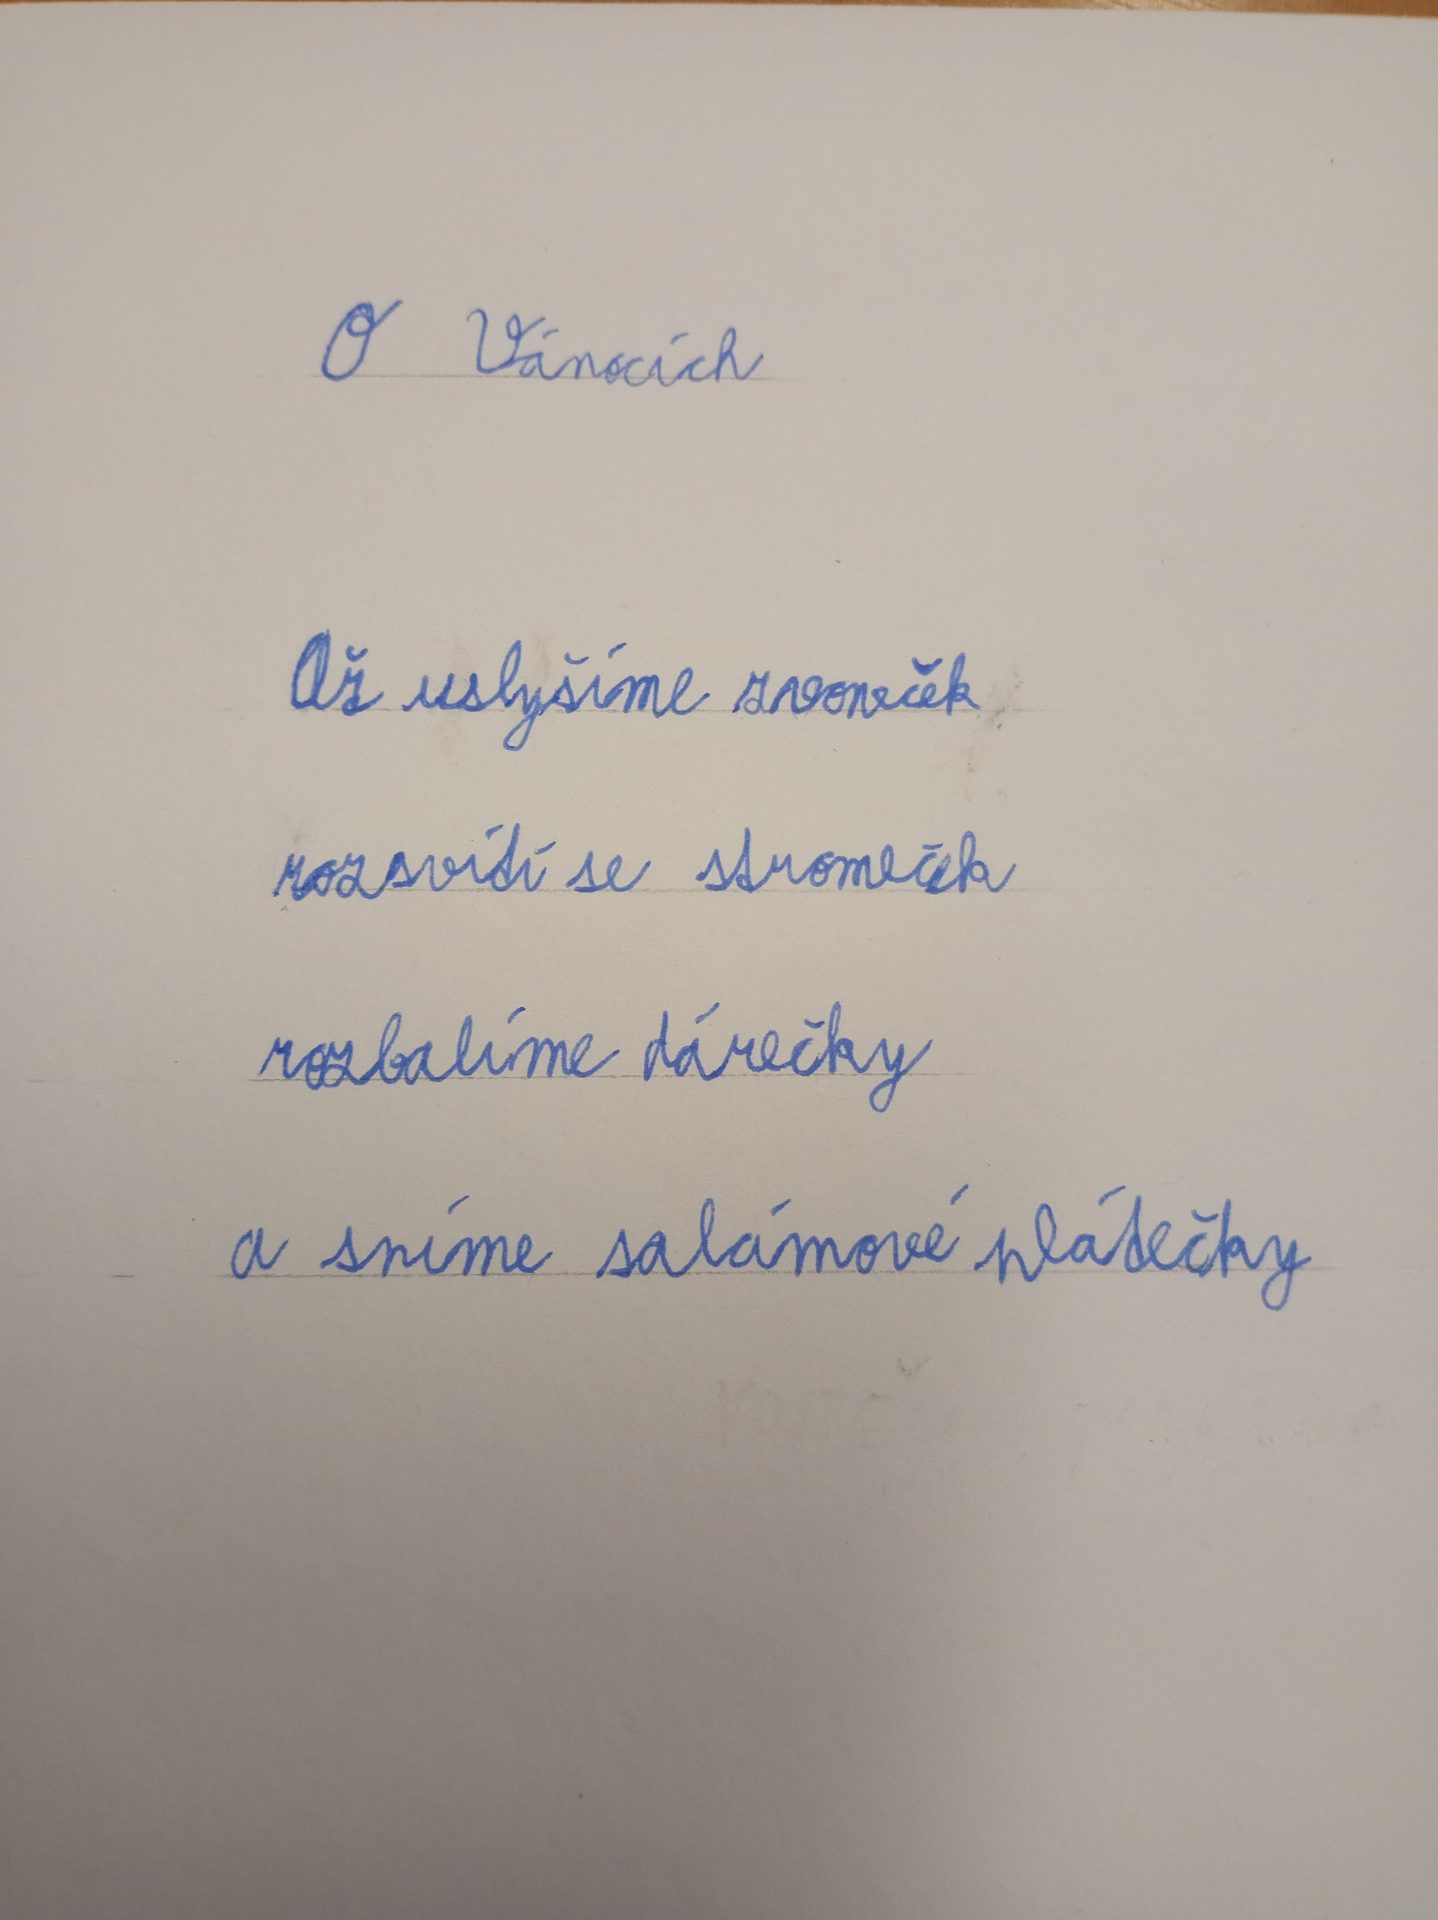 O Vánocích
Až uslyšíme zvoneček
rozsvítí se stromeček
rozbalíme dárečky
a sníme salámové plátečky